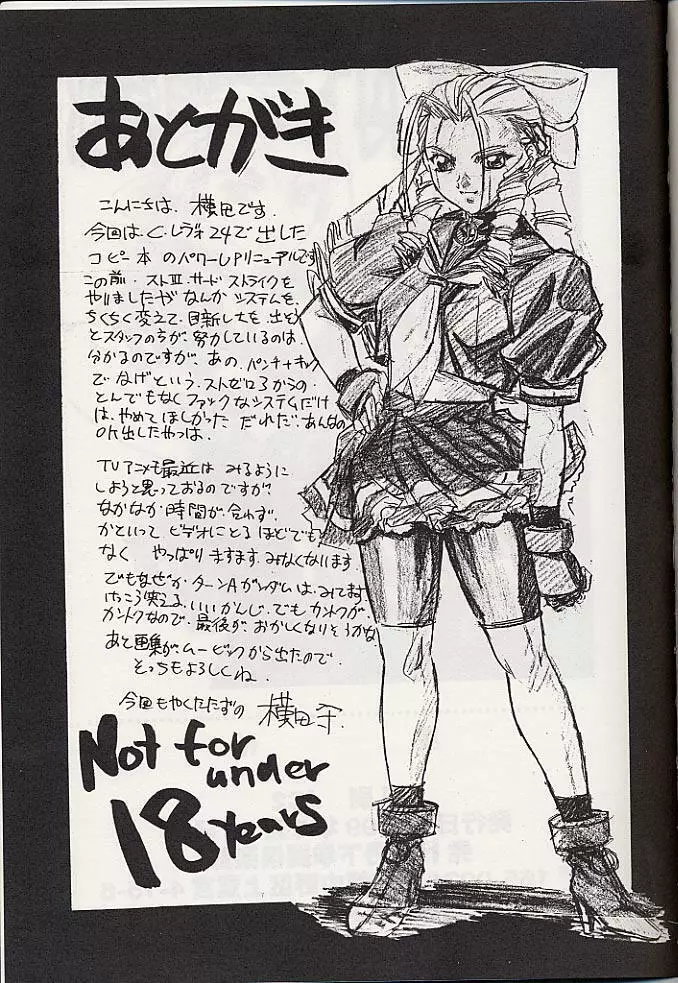 あとがき
こんにちは、横田です。
今回は、C.レヴォ24で出した
コピー本のパワーUPリニューアルです
この前、ストⅢ.サードストライクを
やりましたがなんかシステムを、
ちくちく変えて、目新しさを、出そう
とスタッフの方が、努力しているのは、
分かるのですが、あの、パンチ+キック
でなげという、ストゼロ3からの、
とんでもなくファックなシステムだけ
は、やめてほしかった だれだ、あんなの
OK出したやつは、
TVアニメも最近は みるように
しようと思っておるのですが、
なかなか時間が合わず、
かといって ビデオにとるほどでも
なく やっぱり ますます、みなくなります
でもなぜか ターンAガンダムは、みてます
けっこう笑える、いいかんじ、でも カントクが、
カントクなので、最後が、おかしくなりそうかな
あと画集が、ムービックから出たので、
そっちもよろしくね、
今回もやくたたずの 横田守.
Not for
under
18 years